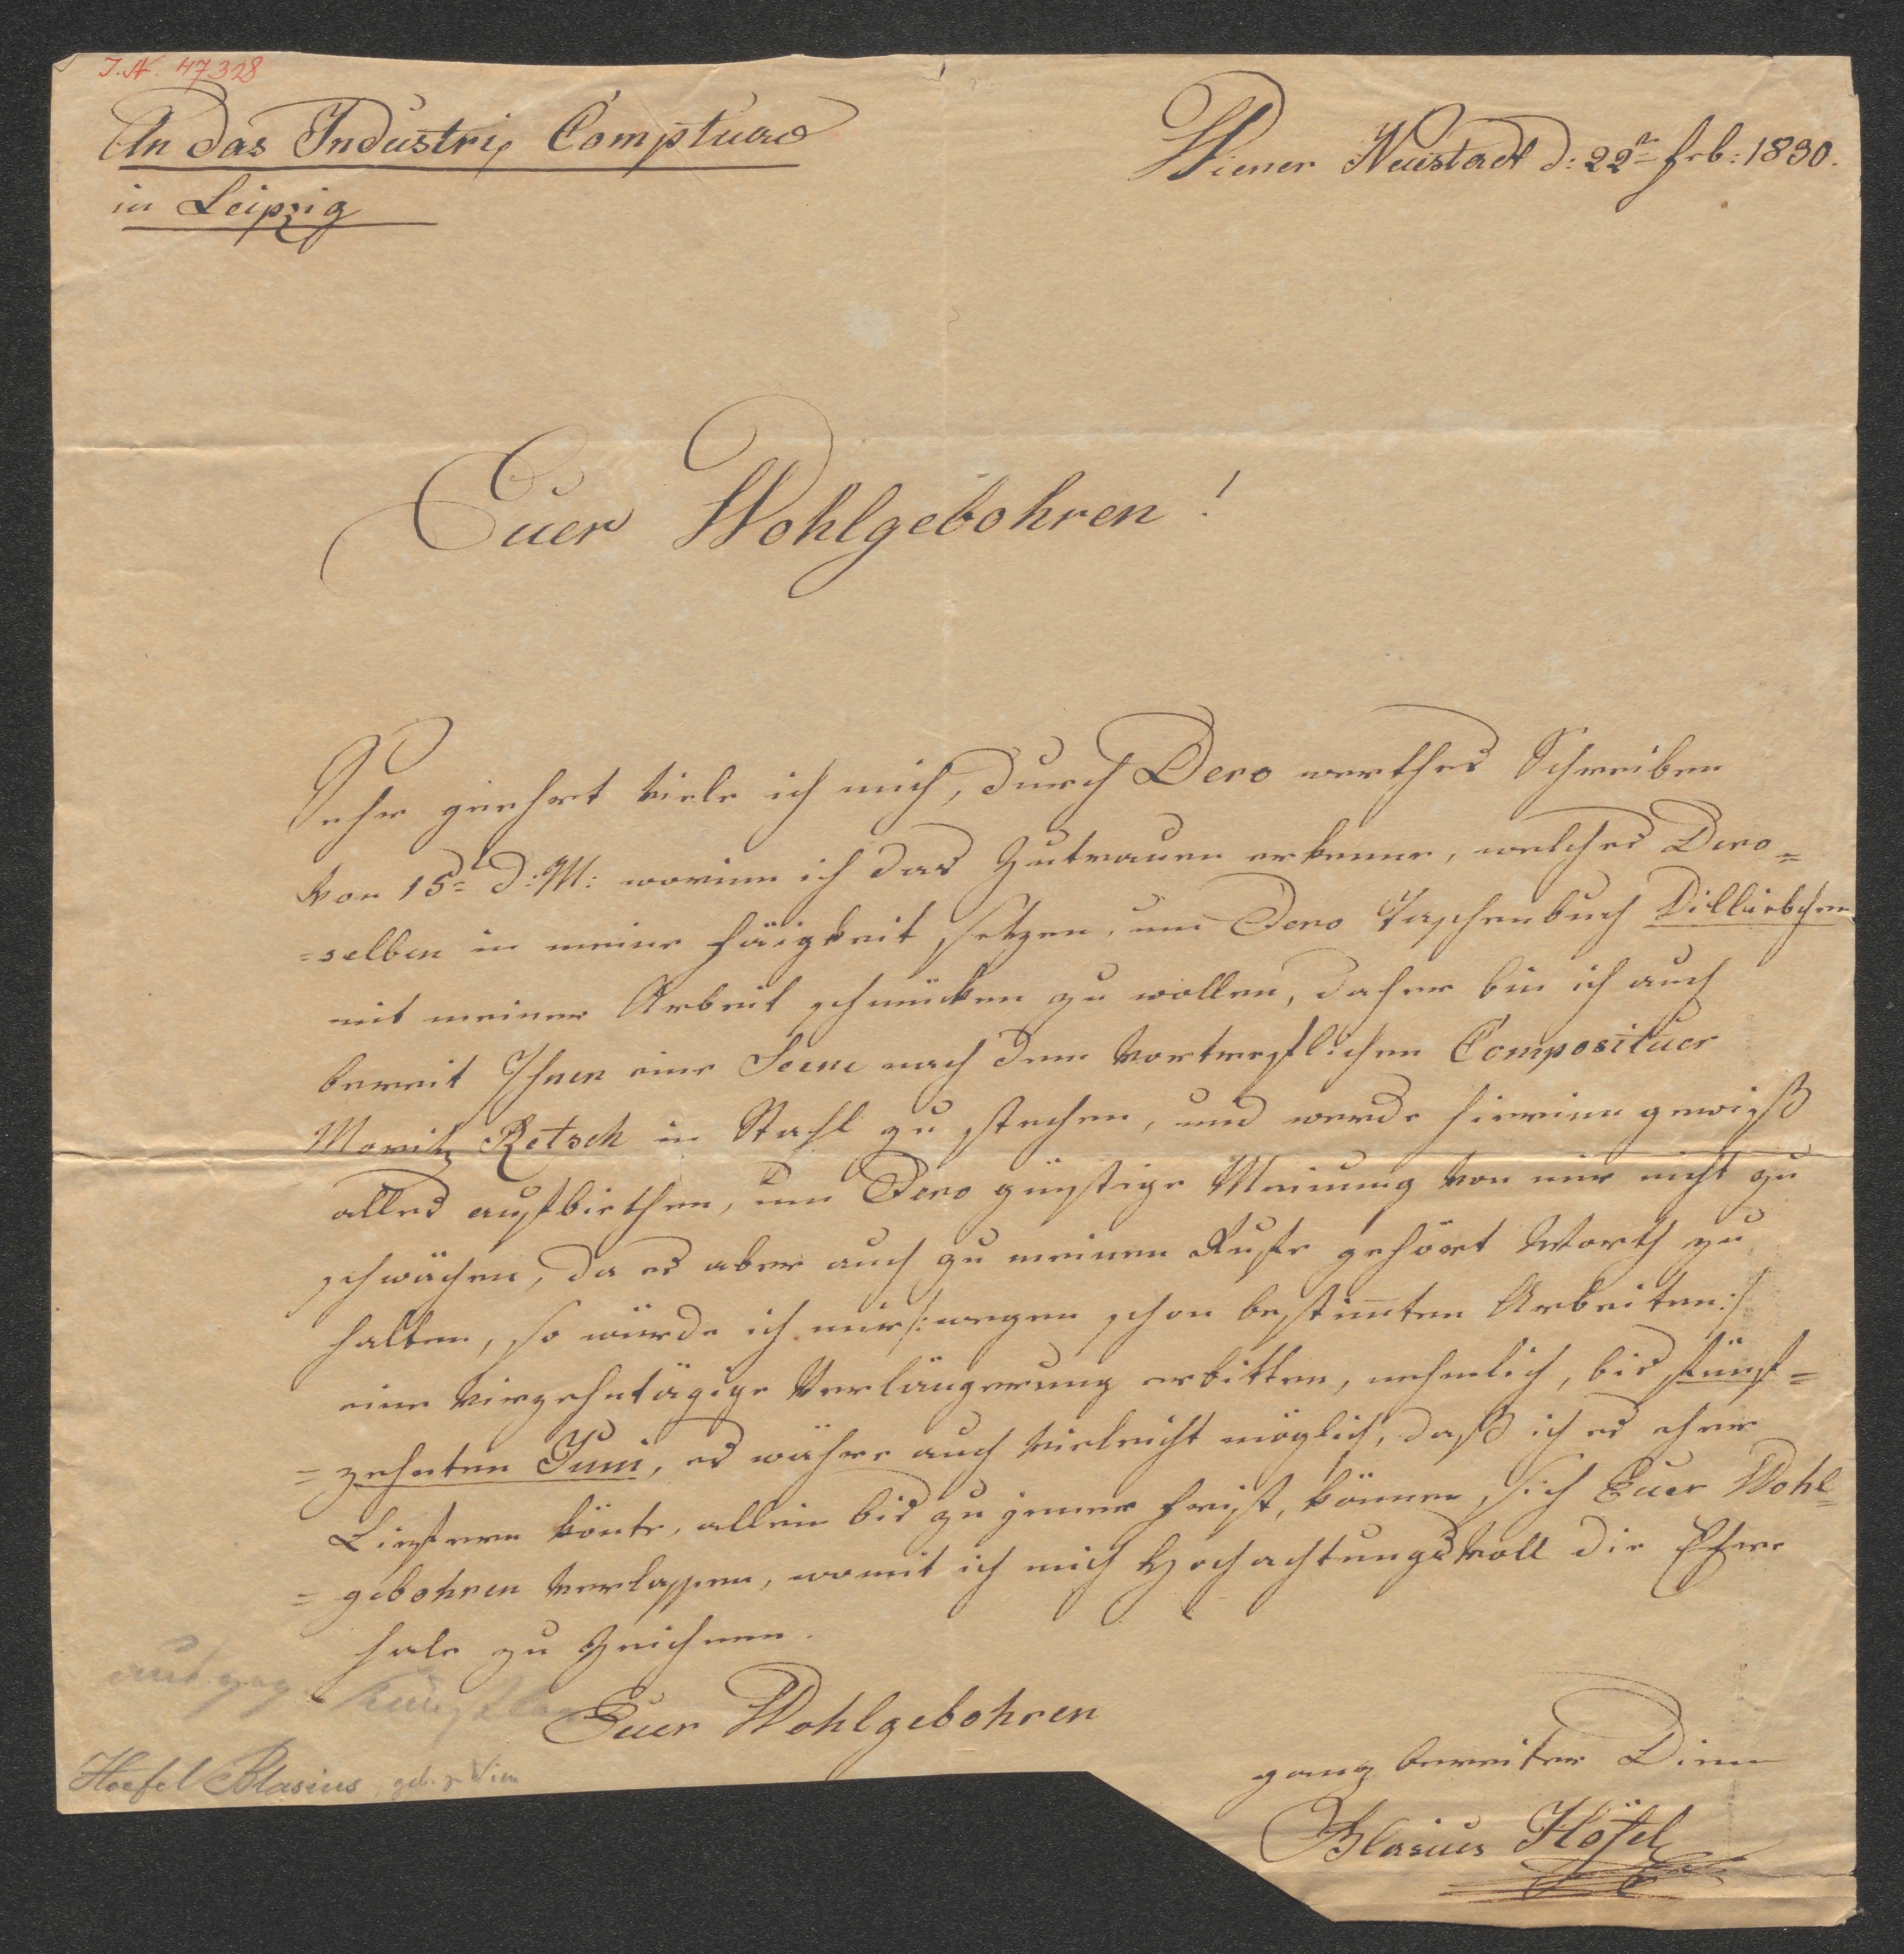 I.N. 47328
An das Industrie Comptuar
in Leipzig
Wiener Neustadt d: 22n feb: 1830.
Euer Wohlgebohren!
Sehr geehrt viele ich mich, durch Dero werthes Schreiben
von 15t d: M: worinn ich das Zutrauen erkenne, welches Dero=
=selben in meine Fäigkeit setzen, um Dero Taschenbuch Villiebchen
mit meiner Arbeit schmüken zu wollen, daher bin ich auch
bereit Ihnen eine Scene nach dem vortreflichen Composituer
Moritz Retsch in Stahl zu stechen, und werde hierinn gewiß
alles aufbiethen, um Dero günstige Meinung von mir nicht zu
schwächen, da es aber auch zu meinen Rufe gehört Worth zu
halten, so würde ich mir /: wegen schon bestimten Arbeiten :/
eine vierzehntägige Verlängerung erbitten, nehmlich, bis fünf=
=zehnten Juni, es währe auch vieleicht möglich, daß ich es eher
Liefern könte, allein bis zu jener Frist, können sich Euer Wohl=
=gebohren verlassen, womit ich mich Hochachtungsvoll die Ehre
habe zu Zeichnen.
Euer Wohlgebohren
ganz bereiter Diene
Blasius Höfel
Hoefel Blasius, geb. z. Wien